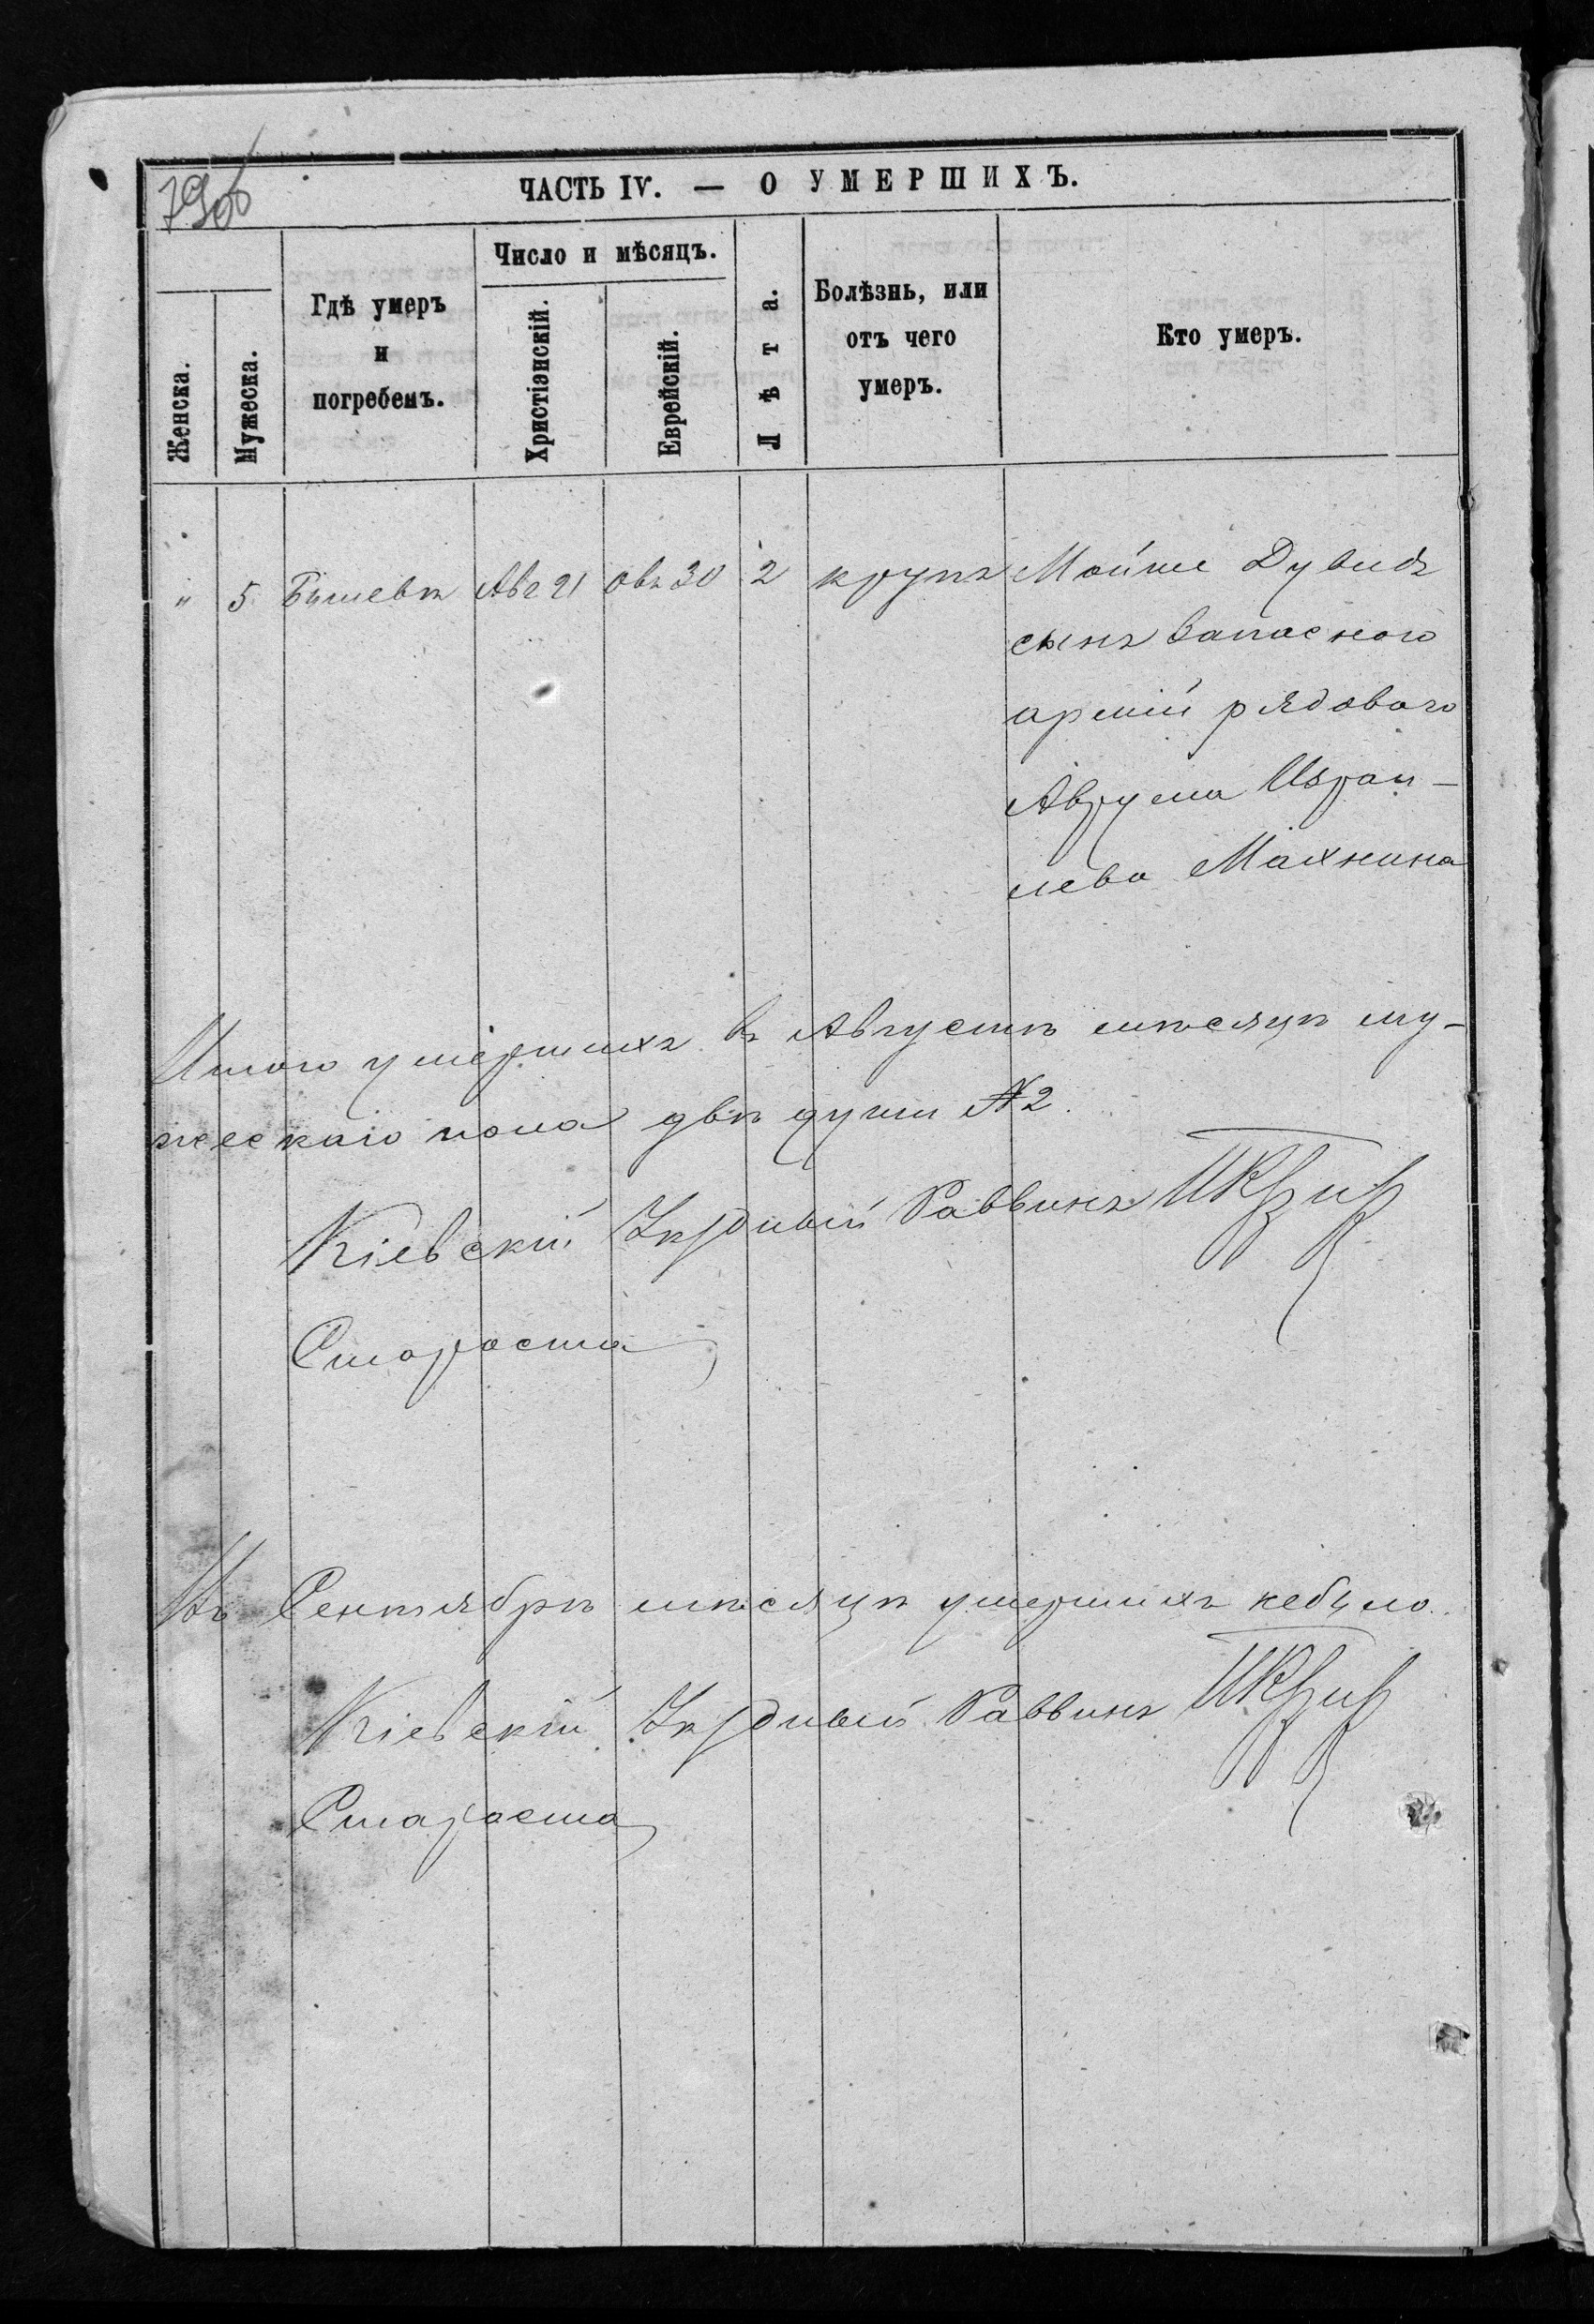 79об
ЧАСТЬ IV. — О УМЕРШИХЪ.
Женска.
Мужеска.
Гдѣ умеръ и погребенъ.
Число и мѣсяцъ.
Христіэнскій.
Еврейскій.
Лѣта.
Болѣзнь, или отъ чего умеръ.
Кто умеръ.
" 5 Бышевѣ Авг 21 Овъ 30 2 крупъ Мойше Дувидъ
сынъ запасного
арміи рядового
Аврума Израи-
лева Махнина
Итого умершихъ въ Августѣ мѣсяцѣ му-
жескаго пола двѣ души № 2.
Кіевскій Уѣздный Раввинъ
Староста
Въ Сентябрѣ мѣсяцѣ умершихъ небыло.
Кіевскій Уѣздный Раввинъ
Староста